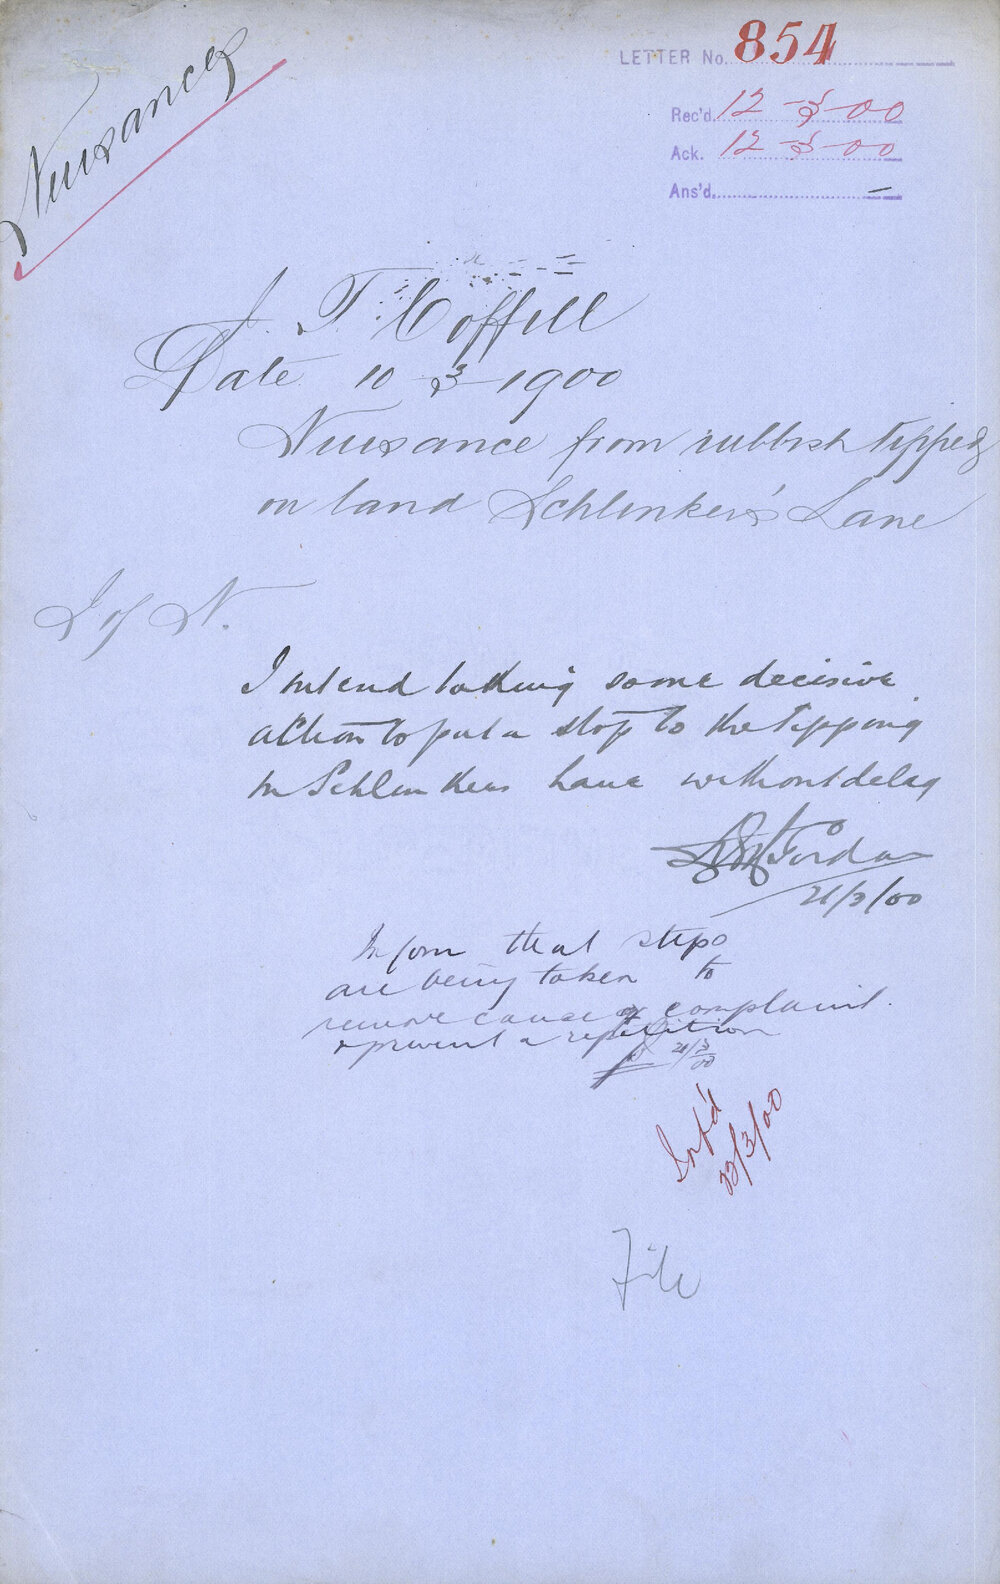 Nuisance
LETTER No. 854
Rec'd. 12-3-00
Ack. 12-3-00
Ans'd. —
J. T. Coffill
Date 10-3-1900
Nuisance from rubbish tipped
on land Schlinker's Lane
I of N.
I intend taking some decisive
action to put a stop to the tipping
in Schlinkers Lane without delay
21/3/00
Inform that steps
are being taken to
remove cause of complaint
& prevent a repetition
21/3/00
Inf'd
23/3/00
File